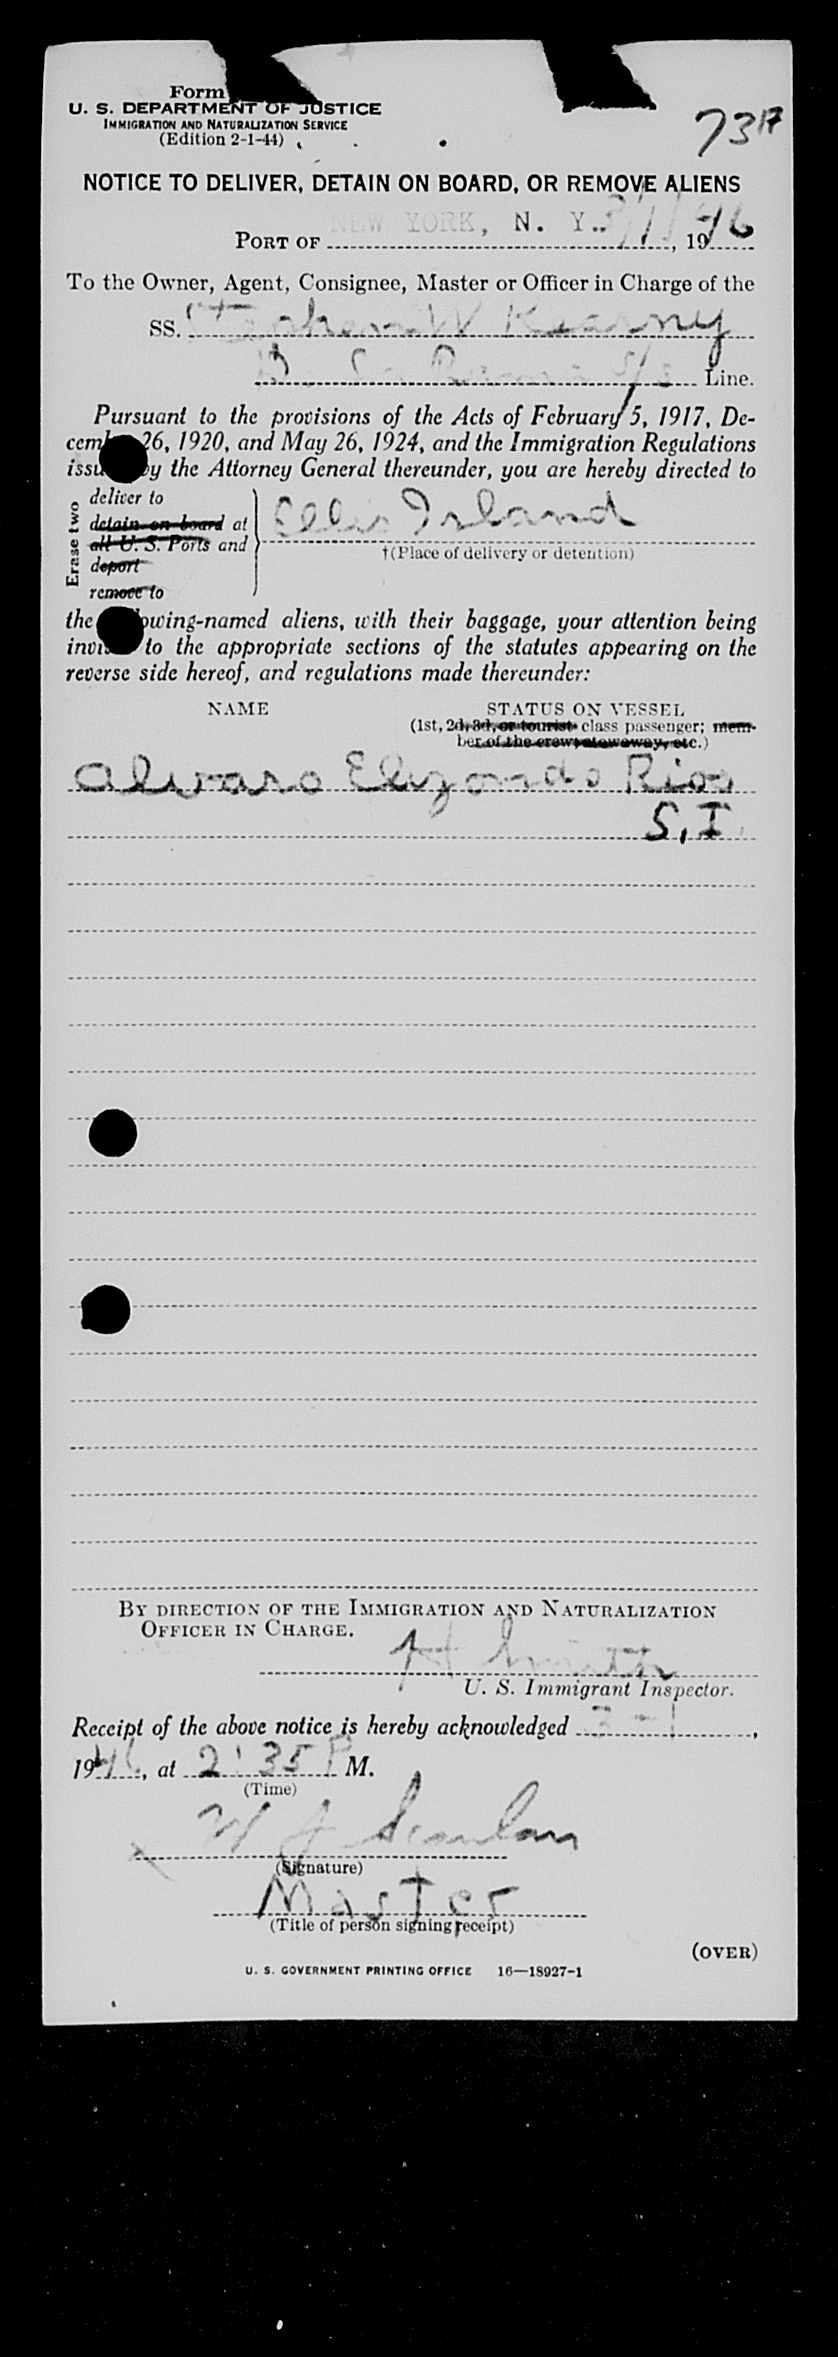 Form
U. S. DEPARTMENT OF JUSTICE
IMMIGRATION AND NATURALIZATION SERVICE
(Edition 2-1-44)
73
NOTICE TO DELIVER, DETAIN ON BOARD, OR REMOVE ALIENS
PORT OF NEW YORK, N. Y. 3/1/, 1946
To the Owner, Agent, Consignee, Master or Officer in Charge of the
SS. Stephen W Kearny
Line.
Pursuant to the provisions of the Acts of February 5, 1917, De-
cember 26, 1920, and May 26, 1924, and the Immigration Regulations
issued by the Attorney General thereunder, you are hereby directed to
Erase two
deliver to
detain on board at
all U. S. Ports and
deport
remove to
Ellis Island
†(Place of delivery or detention)
the following-named aliens, with their baggage, your attention being
invited to the appropriate sections of the statutes appearing on the
reverse side hereof, and regulations made thereunder:
NAME STATUS ON VESSEL
(1st, 2d, 3d, or tourist class passenger; mem-
ber of the crew, stowaway, etc.)
Alvaro Elizondo Rios
S. I.
BY DIRECTION OF THE IMMIGRATION AND NATURALIZATION
OFFICER IN CHARGE.
Smith
U. S. Immigrant Inspector.
Receipt of the above notice is hereby acknowledged 3-1,
1946, at 2:35 P M.
(Time)
X W J Scanlan
(Signature)
Master
(Title of person signing receipt)
(OVER)
U. S. GOVERNMENT PRINTING OFFICE 16—18927-1